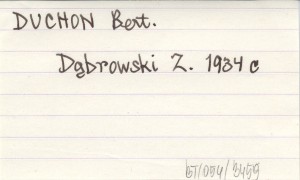 DUCHON Bert.
Dąbrowski Z. 1934 c
BT/094/3459